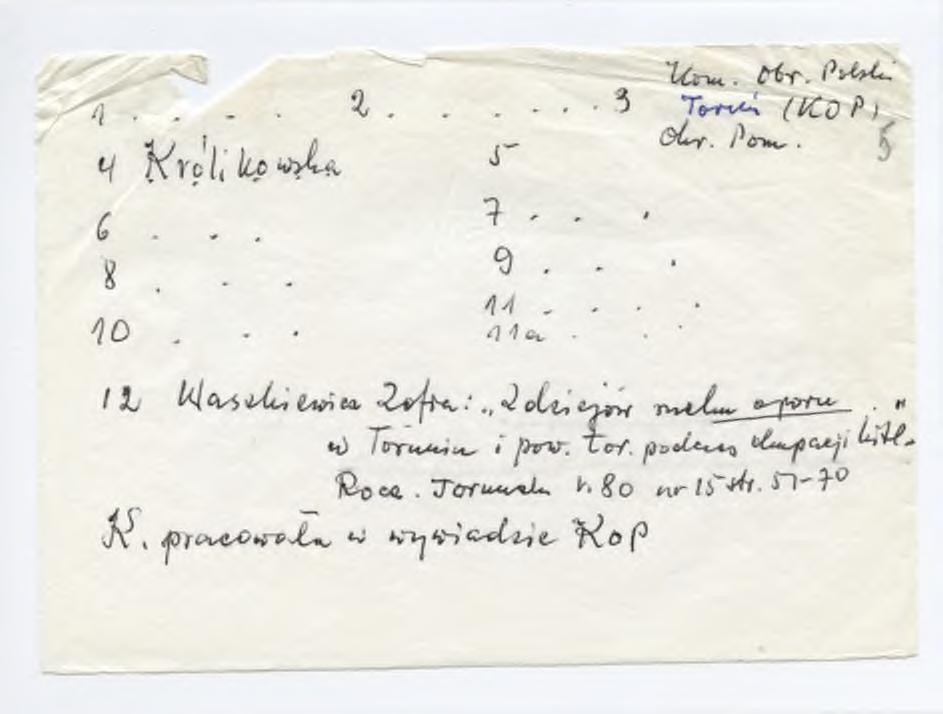 Kom. Obr. Polski
1 . . . . 2 . . . . . . . 3 Toruń (KOP)
Okr. Pom. 5
4 Królikowska 5
6 . . . 7 . . .
8 . . . 9 . . .
10 . . . 11 . . . .
11a . . .
12 Waszkiewicz Zofia: „Z dziejów ruchu oporu . "
w Toruniu i pow. tor. podczas okupacji hitl.
Rocz. Toruński r. 80 nr 15 str. 51-70
K. pracowała w wywiadzie KOP